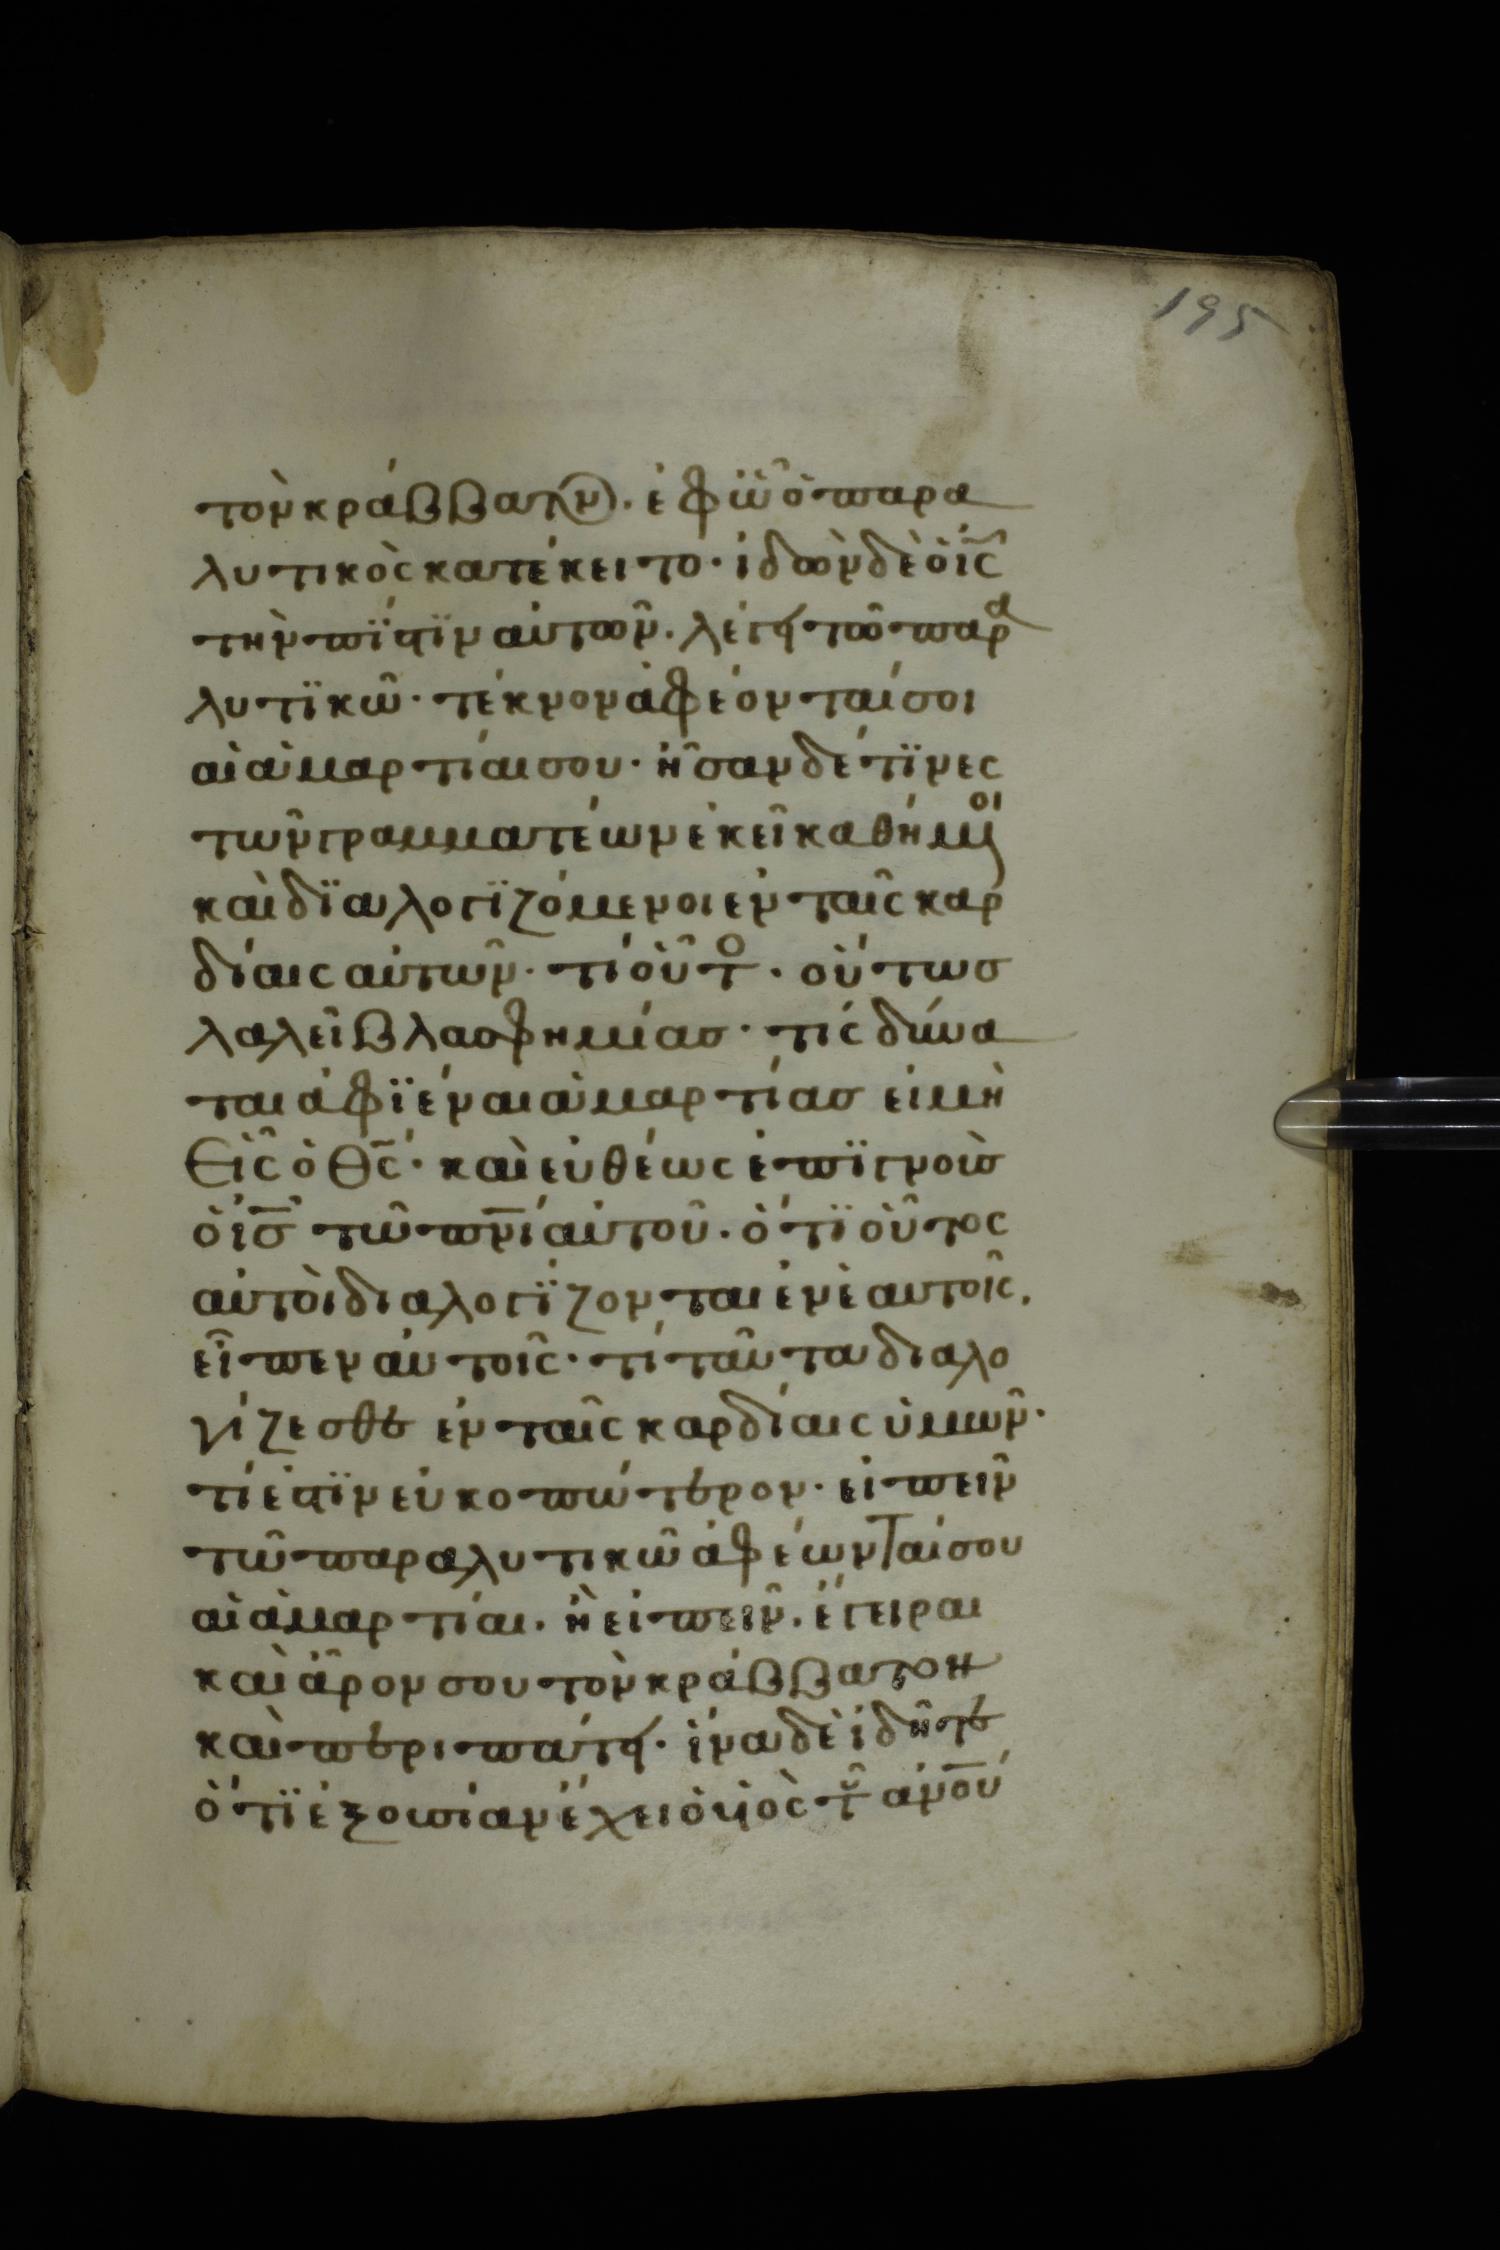 195
τὸν κράββατον. ἐφ ὧ ὁ παρα
λυτικὸς κατέκειτο· ἰδὼν δὲ ὁ ἰς̅
τὴν πίστϊν αὐτῶν. λέγει τῶ παρα
λυτϊκῶ· τέκνον ἀφέονταί σοι
αἱ ἁμαρτίαι σου· ἦσαν δέ τϊνες
τῶν γραμματέων ἐκεῖ καθήμοι
καὶ δϊαλογϊζόμενοι ἐν ταῖς καρ
δίαις αὐτῶν· τί οὗτο. οὕτως
λαλεῖ βλασφημίας· τίς δύνα
ται ἀφϊέναι ἁμαρτίας εἰ μὴ
εἷς ὁ θς̅· καὶ εὐθέως ἐπϊγνοὺς
ὁ ἰς̅ τῶ πνι̅ αὐτοῦ. ὅτϊ οὗτος
αὐτοὶ διαλογϊζονται ἐν ἑαυτοῖς.
εἶπεν αὐτοῖς· τί ταῦτα διαλο
γίζεσθε ἐν ταῖς καρδίαις ὑμῶν·
τί ἐστϊν εὐκοπώτερον· εἰπεῖν
τῶ παραλυτικῶ ἀφέωνταί σου
αἱ ἁμαρτίαι. ἢ εἰπεῖν. ἔγειραι
καὶ ἆρον σου τὸν κράββατον
καὶ περιπάτει· ἵνα δὲ ἰδῆτε
ὅτϊ ἐξουσίαν ἔχει ὁ υἱὸς τοῦ ἀνο̅υ